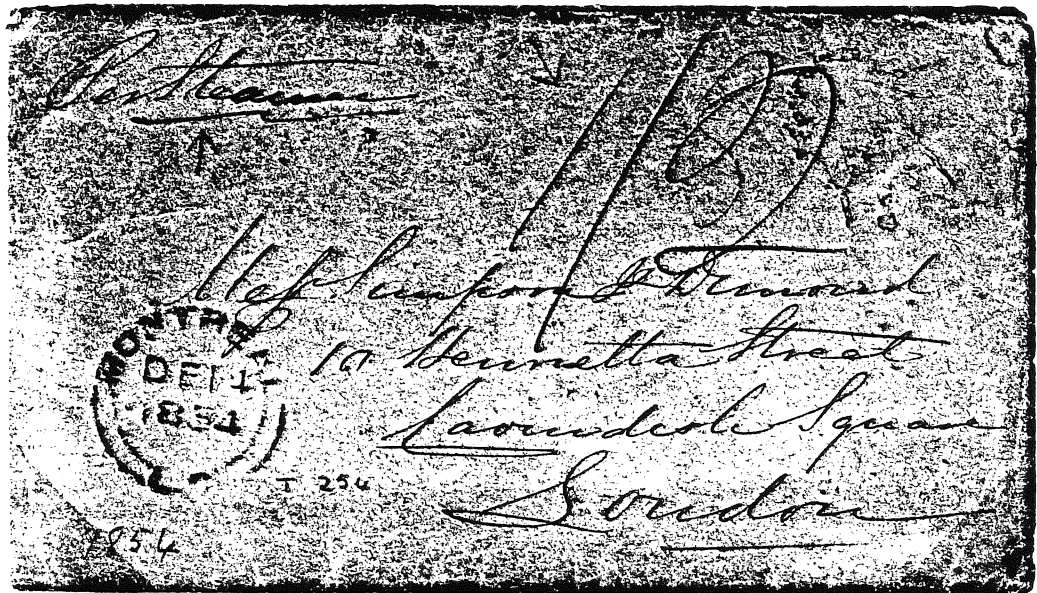 Per Steamer
Mess Simpson & Dimond
10 Henrietta Street
Cavendish Square
London
MONTREAL
DE 14
1854
L.C.
T 254
1854